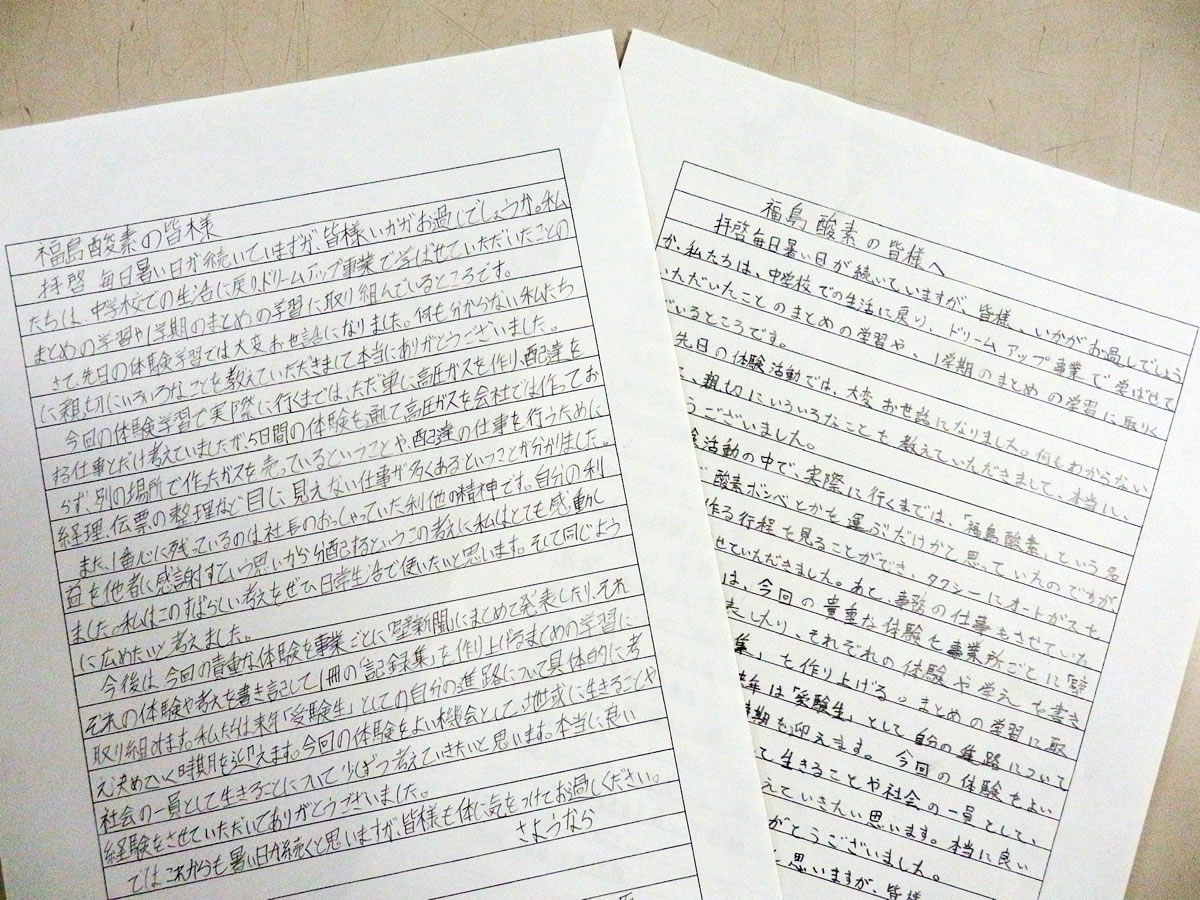 福島酸素の皆様
拝啓 毎日暑い日が続いていますが、皆様いかがお過しでしょうか。私
たちは、中学校での生活に戻り、ドリームアップ事業で学ばせていただいたことの
まとめの学習や1学期のまとめの学習に取り組んでいるところです。
さて、先日の体験学習では大変お世話になりました。何も分からない私たち
に親切にいろいろなことを教えていただきまして本当にありがとうございました。
今回の体験学習で実際に行くまでは、ただ単に高圧ガスを作り、配達を
する仕事とだけ考えていましたが、5日間の体験を通して高圧ガスを会社では作ってお
らず、別の場所で作ったガスを売っているということや、配達の仕事を行うために
経理、伝票の整理など目に見えない仕事が多くあるということが分かりました。
また、1番心に残っているのは社長のおっしゃっていた利他の精神です。自分の利
益を他者に感謝すという思いから分配するというこの考えに私はとても感動し
ました。私はこのすばらしい考えをぜひ日常生活で使いたいと思います。そして同じよう
に広めたいと考えました。
今後は、今回の貴重な体験を事業ごとに「壁新聞」にまとめて発表したり、それ
ぞれの体験や考えを書き記して1冊の「記録集」を作り上げるまとめの学習に
取り組みます。私たちは来年「受験生」としての自分の進路について具体的に考
え決めていく時期を迎えます。今回の体験をよい機会として、地域に生きることや
社会の一員として生きることについて少しずつ考えていきたいと思います。本当に良い
経験をさせていただいてありがとうございました。
ではこれからも暑い日が続くと思いますが、皆様も体に気をつけてお過しください。
さようなら
福島酸素の皆様へ
拝啓毎日暑い日が続いていますが、皆様、いかがお過しでしょう
か。私たちは、中学校での生活に戻り、ドリームアップ事業で学ばせて
いただいたことのまとめの学習や、1学期のまとめの学習に取りく
でいるところです。
先日の体験活動では、大変お世話になりました。何もわからない
に、親切にいろいろなことも教えていただきまして、本当に、
うございました。
活動の中で、実際に行くまでは、「福島酸素」という名
酸素ボンベとかも運ぶだけかと思っていたのですが、
作る行程を見ることができ、タクシーにオートガスを
せていただきました。あと、事務の仕事もさせていた
は、今回の貴重な体験を事業所ごとに「壁
表したり、それぞれの体験や学えを書き
集」を作り上げる。まとめの学習に取
年は「受験生」として自分の進路について
時期も迎えます。今回の体験をよい
て生きることや社会の一員として、
えていきたい思います。本当に良い
がとうございました。
と思いますが、皆様